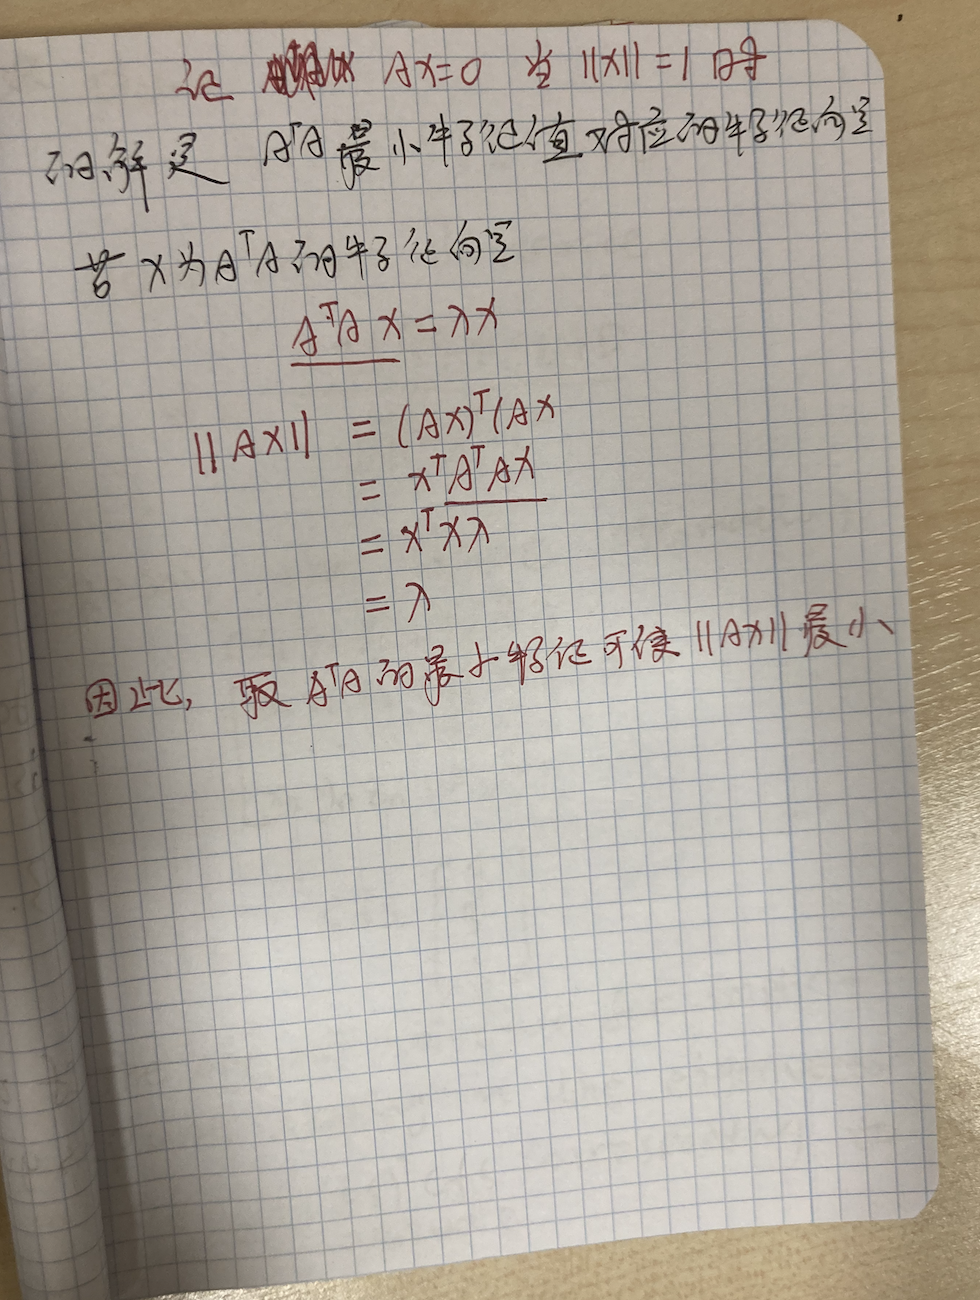 证 AX=0 当 ||X||=1 时
的解是 AᵀA 最小特征值对应的特征向量
若 X 为 AᵀA 的特征向量
AᵀA X = λX
||AX|| = (AX)ᵀ(AX
= XᵀAᵀAX
= XᵀXλ
= λ
因此, 取 AᵀA 的最小特征可使 ||AX|| 最小